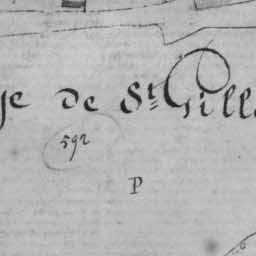 ge de St. Gill
592
P